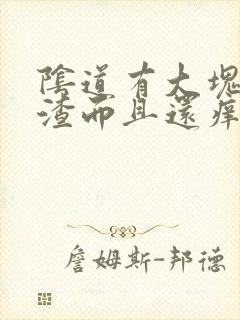 陰道有大塊
渣而且還痒
詹姆斯-邦德